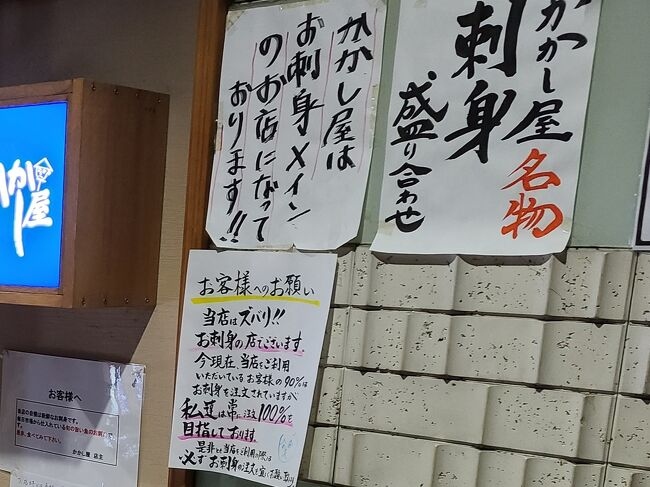 かかし屋
名物
刺身
盛り合わせ
かかし屋は
お刺身メイン
のお店になって
おります!!
かかし屋
お客様へのお願い
当店はズバリ!!
お刺身の店でございます。
今現在、当店をご利用
いただいているお客様の90%は
お刺身を注文されていますが
私達は常に注文100%を
目指しております。
是非とも当店をご利用の際は
必ずお刺身の注文を
お客様へ
当店の自慢は新鮮なお刺身です。
旬の旨い魚のお刺
是非、食べてみて下さい。
かかし屋 店主